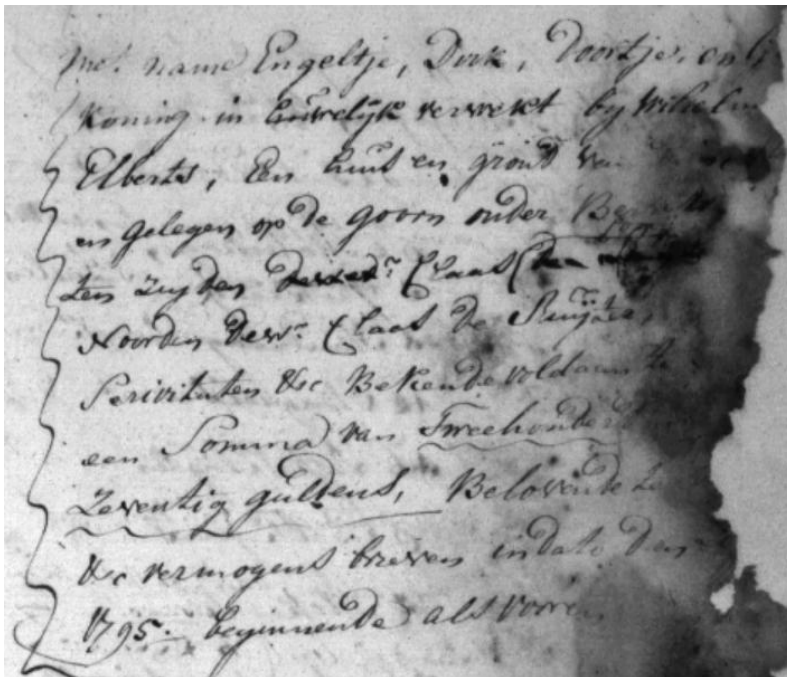 met name Engeltje, Dirk, Doortje, en
Koning in huwelijk verwekt by Wilhelm
Elberts, Een huis en grond van
en gelegen op de goorn onder
ten zuyden Claas
Noorden dewe. Claas de Ruijter
Serivituten &c Bekende voldaan te
een Somma van Tweehonderd
zeventig guldens, Belovende te
&c vermogens brieven in dato den
1795. beginnende als vooren